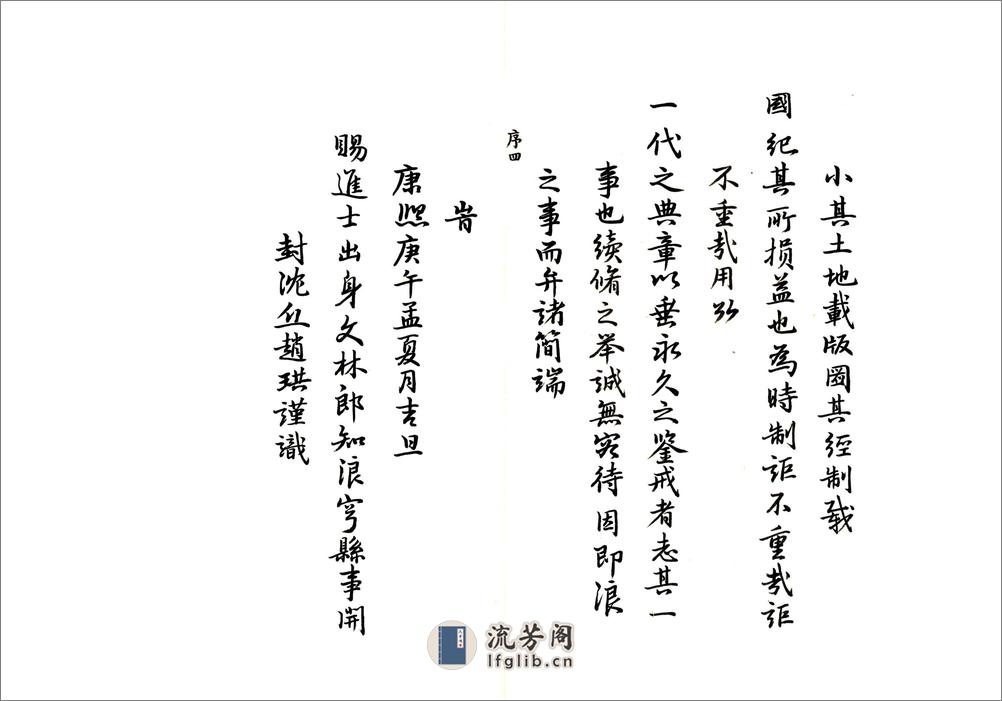 小其土地載版圖其經制載
國紀其所損益也為時制詎不重哉詎
不重哉用以
一代之典章以垂永久之鑒戒者志其一
事也續脩之举誠無容待因即浪
之事而弁諸简端
序四
旹
康熙庚午孟夏月吉旦
賜進士出身文林郎知浪穹縣事開
封沈丘趙珙謹識
流芳阁
lfglib.cn